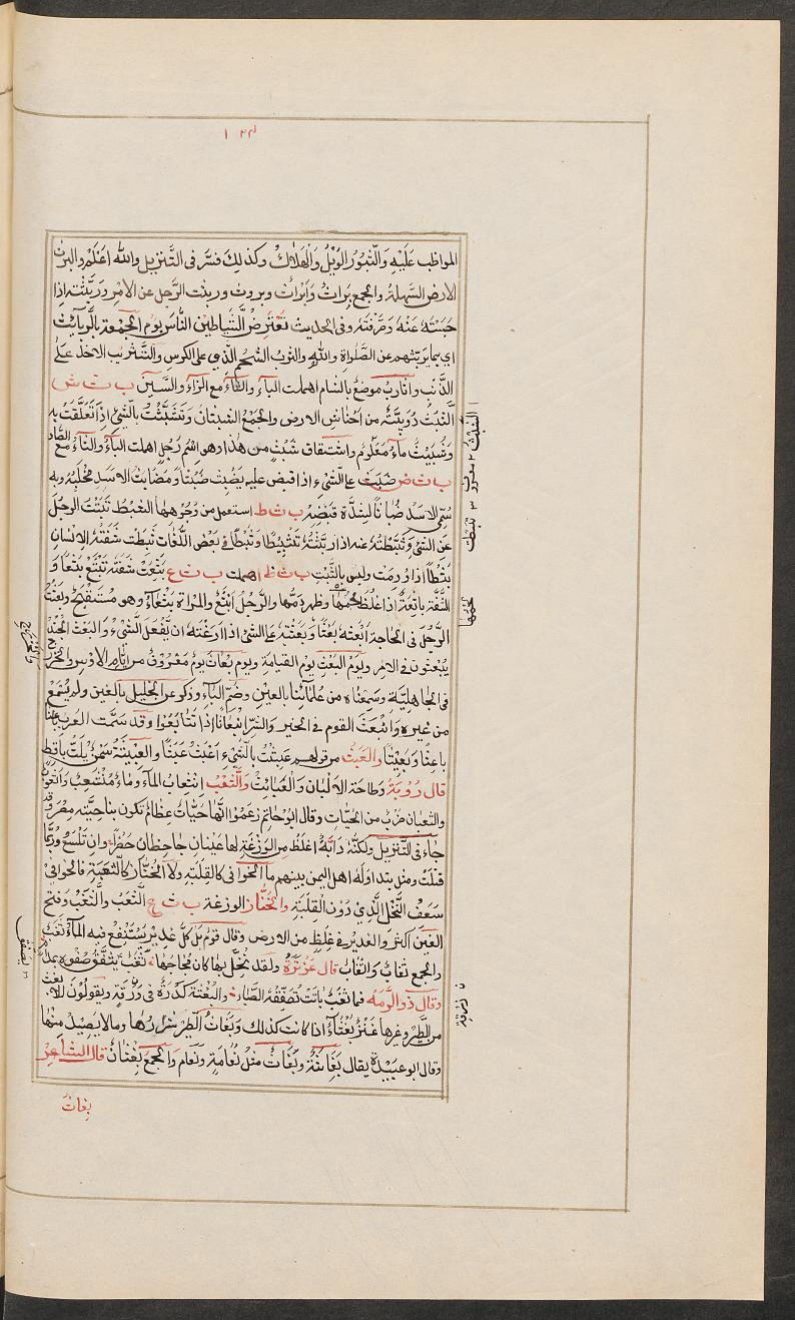 المواظب عَلَيْهِ وَالثُّبُورُ الوَيْلُ وَالْهَلَاكُ وكذلِكَ فسّر فى التَّنزيل والله اعْلَمُ والبرث
الارض السَّهلة والجمع بَراث وَأبْراث وبروث وربثت الرَّجل عن الامْرِ وَرَبَّثْته اِذا
حَبَسْتَهُ عَنْهُ وَصَرَفْتَهُ وفى الحديث تَعْتَرِضُ الشَّياطين النَّاسَ يوم الجمعة بالرَّبائث
اى بما يربثهم عن الصَّلواة والثرب الشحم الذى على الكرش والتَّثريب الاخذ على
الذَّنب واثارب موضعٌ بالشام اهملت الباء والثاء مع الزاء والسّين ب ث ش
الشَّبَث دُوَيبَّة من احناش الارض والجمع الشبثان وَتَشَبَّثْتُ بالشىْ اذا تَعَلَّقْتَ به
وَشُبَيْث ماء مَعْلُوم واشتقاق شَبَث من هٰذا وهو اسْم رَجُلٍ اهملت الباء والثاء مع الصّاد
ب ث ض ضَبَثَ على الشَّىْءِ اذا قبض عليه يَضْبِث ضَبْثًا وَمَضَابِث الاسَد مخْلبه وبه
سُمِّى الاسد ضُبَاثًا لشدَّة قبْضِهِ ب ث ط استعمل من وجُوهها الثبط ثَبَّتّ الرجُلَ
عن الشىْ وَثَبَّطْتُهُ عنه اذا رَبَّثْتُهُ تَثْبِيْطًا وَثَبْطًا وفى بَعْض اللُّغات ثَبِطَت شَفَتُهُ الانسان
ثَبْطًا اذا وَرمَت وليس بالثَّبْتِ ب ث ظ اهملت ب ث ع بَثِعَتْ شَفَتُه تَبْثَعُ بَثَعًا وَ
الشَّفَة باثِعَةٌ اذا غلظ لحمها وظهر دمها والرَّجُل اَبْثَعُ والمراة بَثْعَاءُ وهو مُستَقبَحٌ وبَعَثْتُ
الرَّجُلَ فى الحاجة اَبْعَثُه بَعْثًا وَبَعَثْتُه على الشىْ اذا اَرَغْتَه ان يَّفْعَلَ الشَّىْءَ والبَعْثُ الجُنْدُ
يُبْعَثون فى الامر ويَوْمُ البَعْثِ يوم القيامة ويوم بُعَاث يومٌ مَعْرُوفٌ من ايّام الاوس والخزرج
فى الجاهليّة وسَمِعْنَاه من عُلمائنا بالعين وضم الباء وذكر عن الخليل بالغين ولم يُسْمَعْ
من غيره وَانْبَعَثَ القوم فى الخير والشر انْبِعَاثًا اذا تَتَابَعُوا وقد سَمَّت العرب
باعِثًا وَبُعَيْثًا والعَبَثُ من قولهم عَبَثْتُ بالشىْءِ اَعْبَثُ عَبَثًا والعَبِيْثَةُ سَمْنٌ يُلَتُّ باقِطٍ
قال رُؤبة وَطاحت الالبان والعَبَائِثُ والثَّعْبُ اِنْثِعاب الماء وماءٌ مُنْثَعِبٌ
والثعبان ضربٌ من الحيّات وقال ابوحاتم زعموا انّها حَيَّات عِظام تكون بناحيّة مِصْر وقد
جاء فى التَّنزيل ولكنَّه دَابَّة اغلَظُ من الوَزَغةِ لها عَيْنان جاحظان خضراء وان تَلْسَع وربّما
قتلت ومثل يتداوله اهل اليمن بينهم ما الخوافى كالقِلَبَة ولا الخُنّاز كالثُّعَبَةِ فالخوافى
سَعَف النَّخْل الَّذِي دُوْنَ القِلَبَة والخُنّاز الوزغة ب ث غ الثَّغَب والثَّغْب وفتح
الغين اكثر والغديرُ فى غِلَظٍ من الارض وقال قوم بل كل غدير يَسْتَنْقع فيه الماءُ ثَغَب
والجمع ثغاب وَاثغاب قال عَنْتَرَةُ ولقد
وقال ذو الرُّمَّه فما ثَغَبٌ باتَتْ تُصَفِّقُهُ الصَّبا والبُغْثَة كُدْرَة فى وُرْقَةٍ ويقولون للابغث
من الطَّير وغيرها عَنْزٌ بَغْثَاءُ اذا كانت كذلك وَبَغَاثُ الطَيْر شرارُها ومالا يَصِيْدُ مِنْها
وقال ابوعبيدة يقال بَغَاثَة وَبَغَاثٌ مثل نَعَامَة ونعام والجمع بِغْثَان قال الشاعر
بغاث